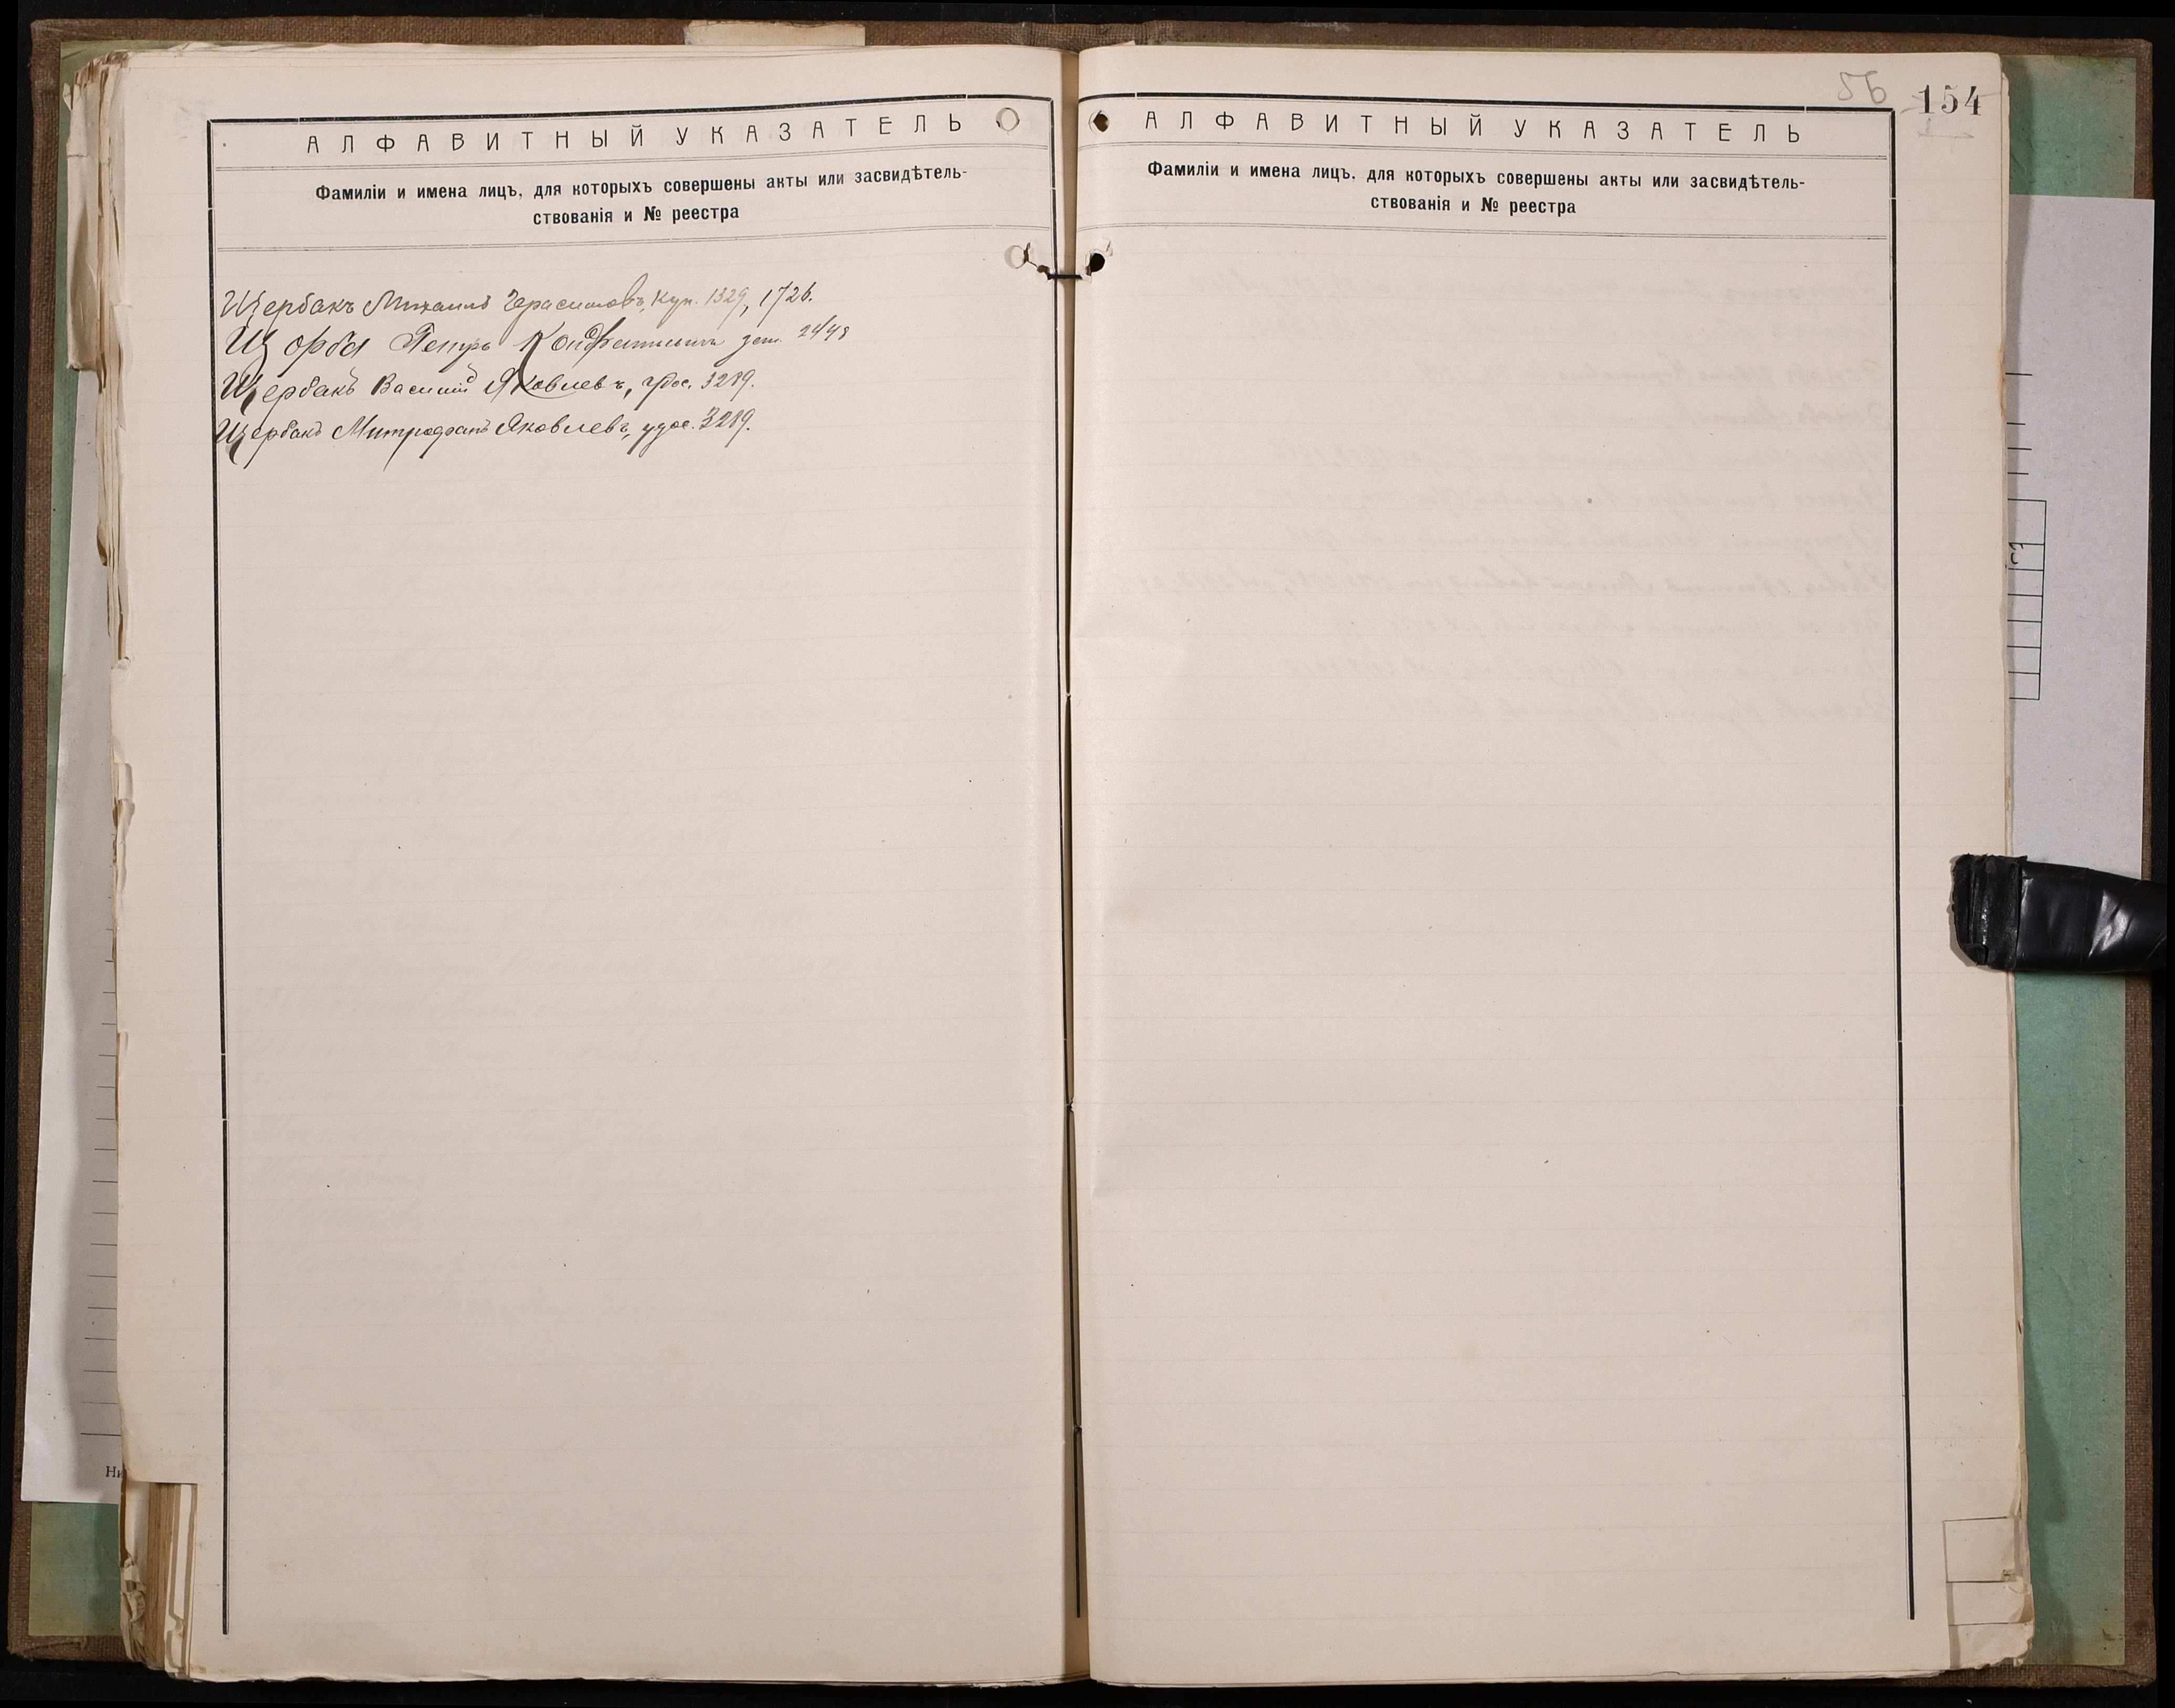 АЛФАВИТНЫЙ УКАЗАТЕЛЬ
Фамиліи и имена лицъ, для которыхъ совершены акты или засвидѣтель-
ствованія и № реестра
Щербакъ Михаилъ Герасимовъ, куп. 1329, 1726.
Щорба Петръ 2448
Щербакъ Василій Яковлевъ, 3289.
Щербакъ Митрофанъ Яковлевъ, 3289.
56 154
АЛФАВИТНЫЙ УКАЗАТЕЛЬ
Фамиліи и имена лицъ, для которыхъ совершены акты или засвидѣтель-
ствованія и № реестра